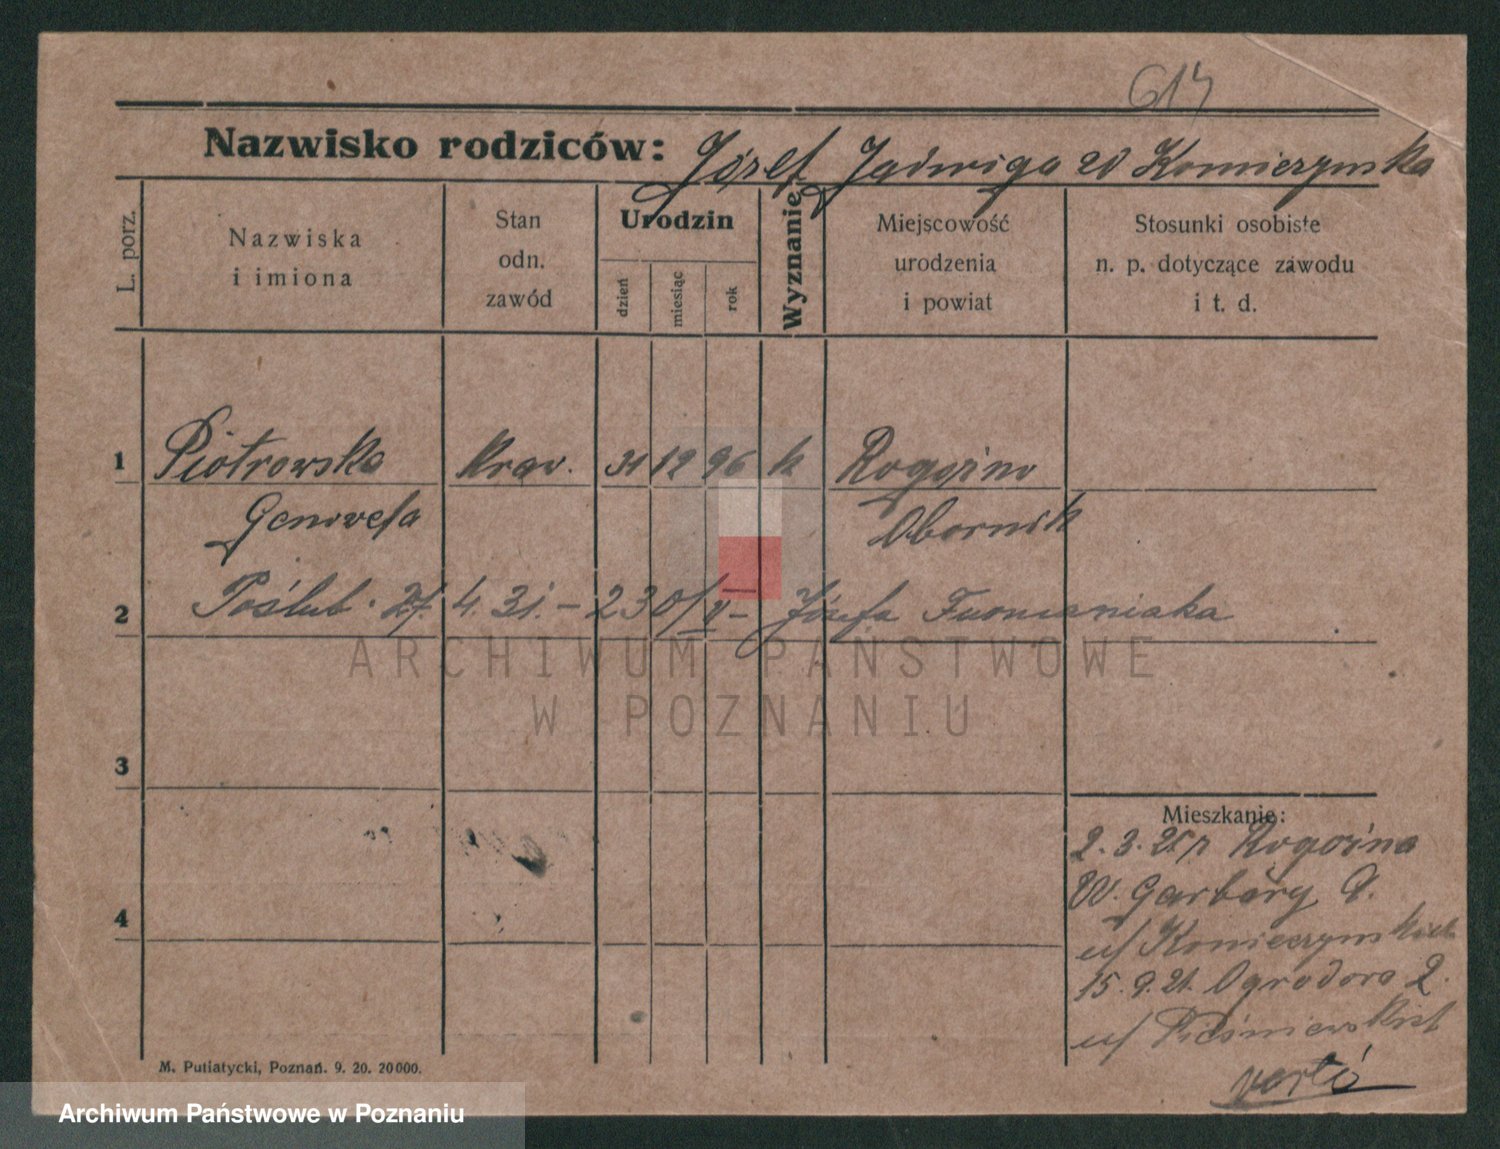 614
Nazwisko rodziców: Józef Jadwiga zd Konieczynska
L. porz.
Nazwiska i imiona
Stan odn. zawód
Urodzin
dzień
miesiąc
rok
Wyznanie
Miejscowość urodzenia i powiat
Stosunki osobiste n. p. dotyczące zawodu i t. d.
1 Piotrowska kraw. 31 12 96 k Rogoźno
Genowefa Obornik
2 Poślub. 27. 4. 31. - 230/V - Józefa
ARCHIWUM PAŃSTWOWE
W POZNANIU
3
Mieszkanie:
2. 3. 21 r Rogoźna
W. Garbary 9.
4
u/
15. 9. 21. Ogrodowa 2.
u/
M. Putiatycki, Poznań. 9. 20. 20000.
Archiwum Państwowe w Poznaniu